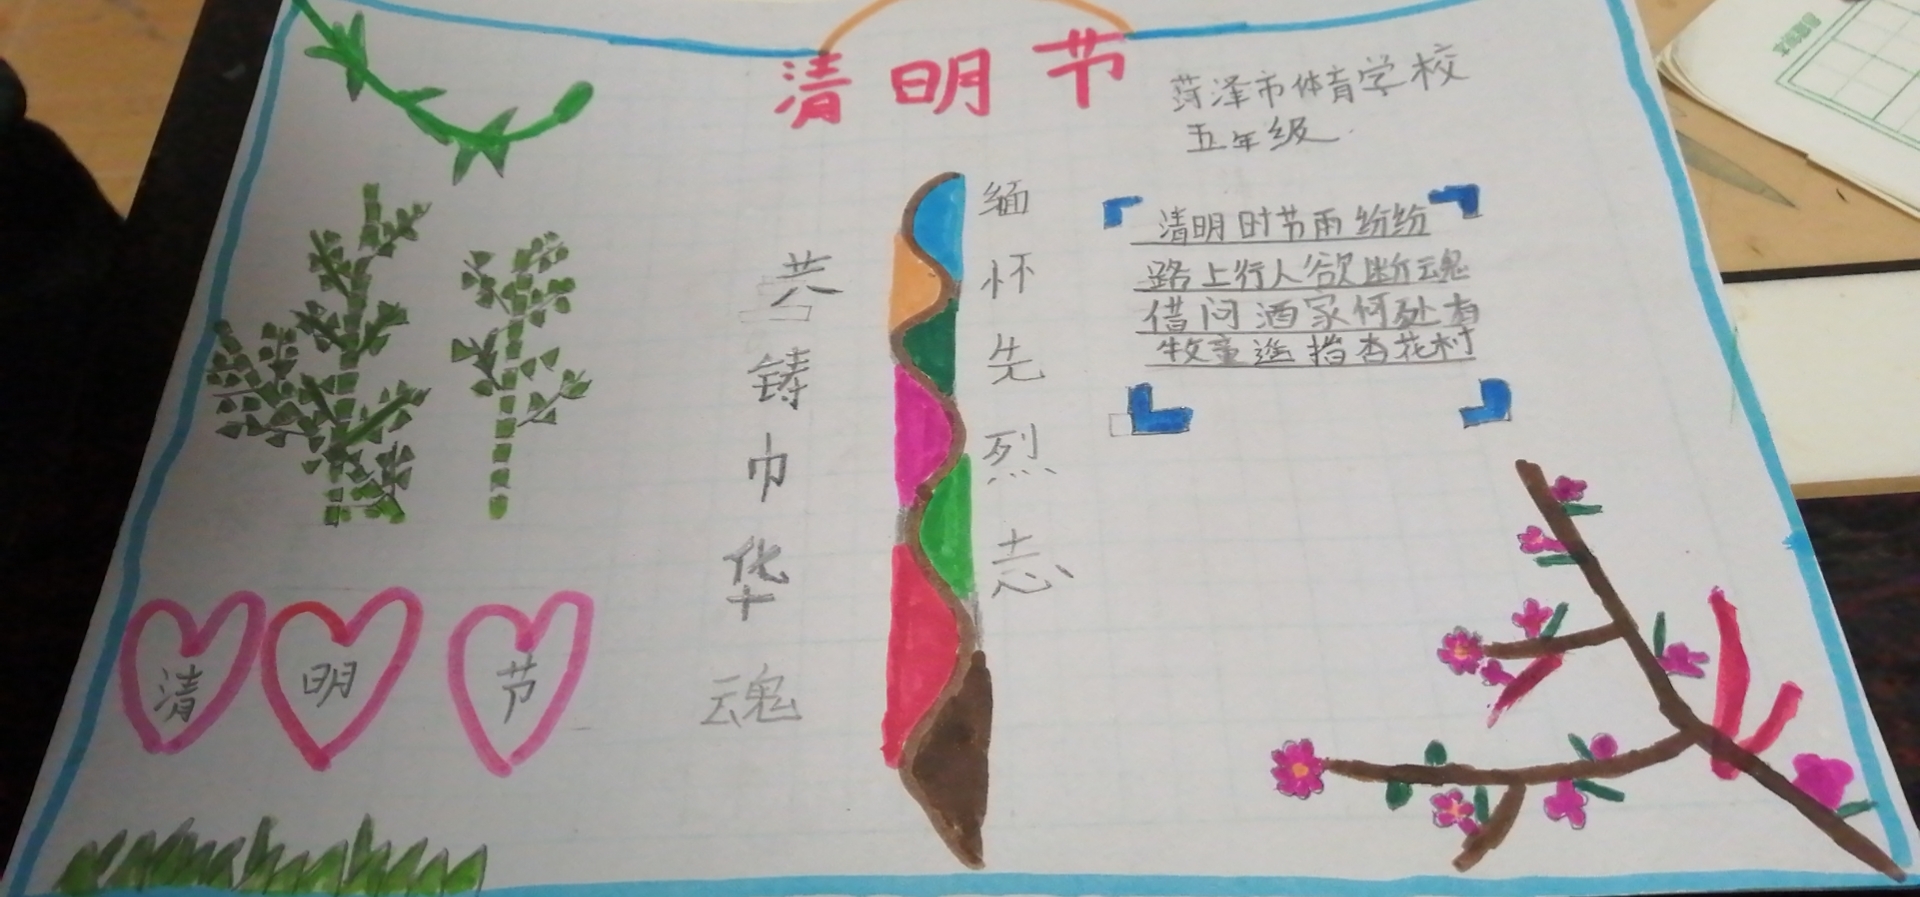 清明节
菏泽市体育学校
五年级
缅怀先烈志
共铸巾华魂
清明时节雨纷纷
路上行人欲断魂
借问酒家何处有
牧童遥指杏花村
清 明 节